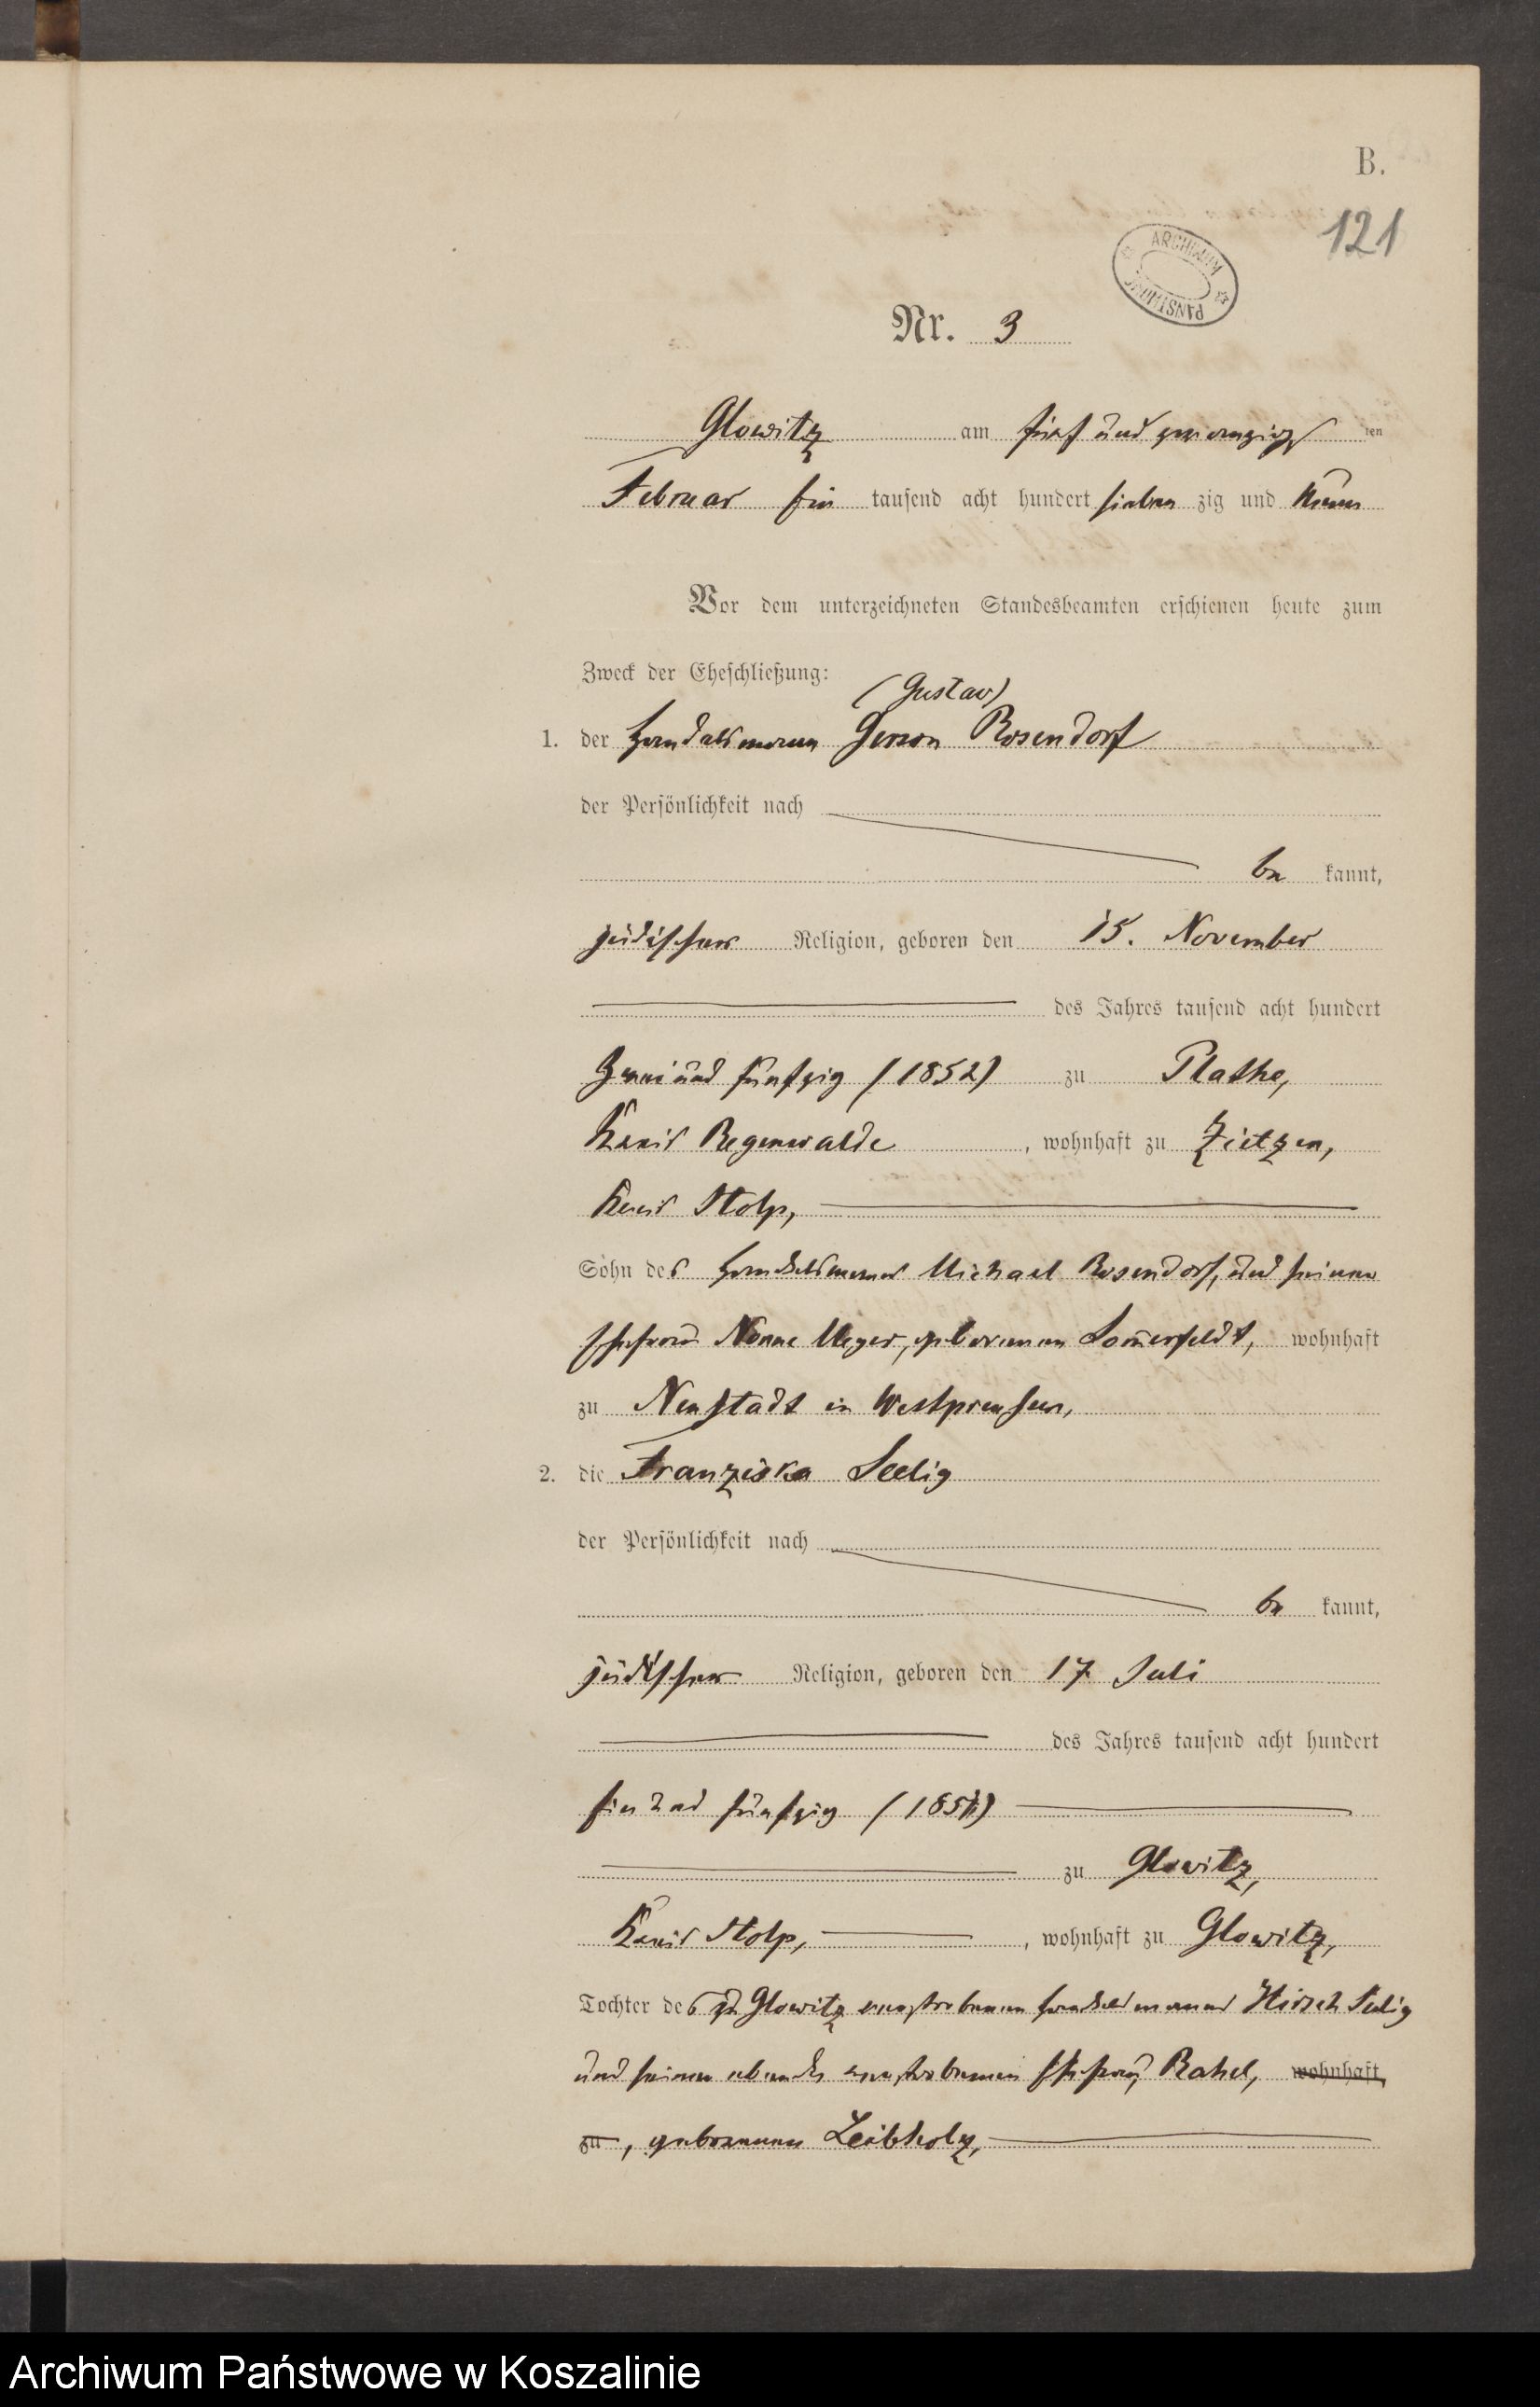 B.
121
ARCHIWUM PAŃSTWOWE
Nr. 3
Glowitz am fünf und zwanzigs ten
Februar ein tausend acht hundert sieben zig und neun
Vor dem unterzeichneten Standesbeamten erschienen heute zum
Zweck der Eheschließung:
(Gustav)
1. der Handelsmann Gerson Rosendorf
der Persönlichkeit nach
be kannt,
jüdischer Religion, geboren den 15. November
des Jahres tausend acht hundert
zwei und fünfzig (1852) zu Plathe,
Kreis Regenwalde, wohnhaft zu Zietzen,
Kreis Stolp,
Sohn des Handelsmanns Michael Rosendorf, und seiner
Ehefrau Nonne Meyer, geborenen Lom̄erfeldt, wohnhaft
zu Neustadt in Westpreußen,
2. die Franziska Seelig
der Persönlichkeit nach
be kannt,
jüdischer Religion, geboren den 17. Juli
des Jahres tausend acht hundert
ein und fünfzig (1851)
zu Glowitz,
Kreis Stolp, , wohnhaft zu Glowitz,
Tochter des zu Glowitz verstorbenen Handelsmanns Hirsch Selig
und seiner ebenda verstorbenen Ehefrau Rahel, wohnhaft
zu, geborenen Leibholz,
Archiwum Państwowe w Koszalinie